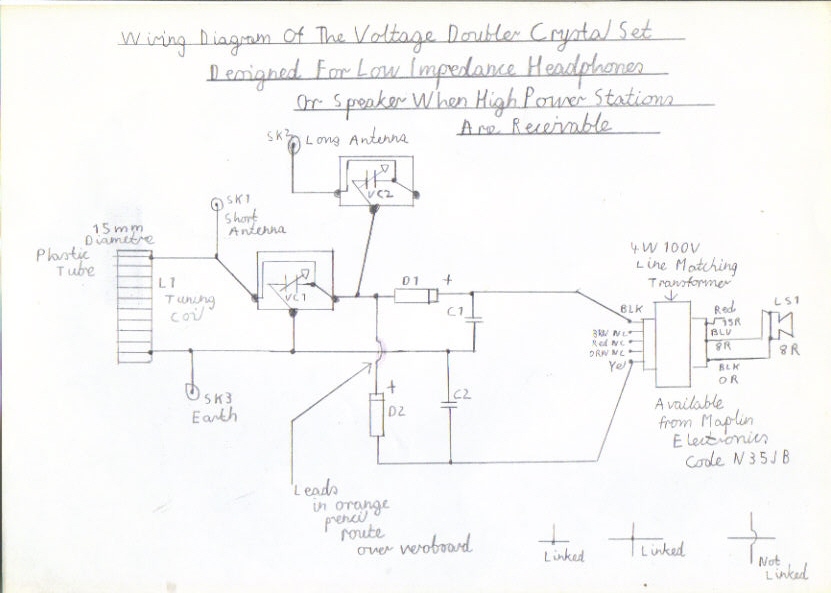 Wiring Diagram Of The Voltage Doubler Crystal Set
Designed For Low Impedance Headphones
Or Speaker When High Power Stations
Are Receivable
SK2 Long Antenna
VC2
SK1
Short
Antenna
15mm
Diametre
Plastic
Tube
L1
Tuning
Coil
VC1
D1 +
C1
4W 100V
Line Matching
Transformer
BLK
BRN NC
Red NC
ORN NC
Yel
Red
BLU
8R
BLK
0R
LS1
8R
SK3
Earth
+
D2
C2
Available
from Maplin
Electronics
Code N35JB
Leads
in orange
pencil
route
over veroboard
Linked
Linked
Not
Linked